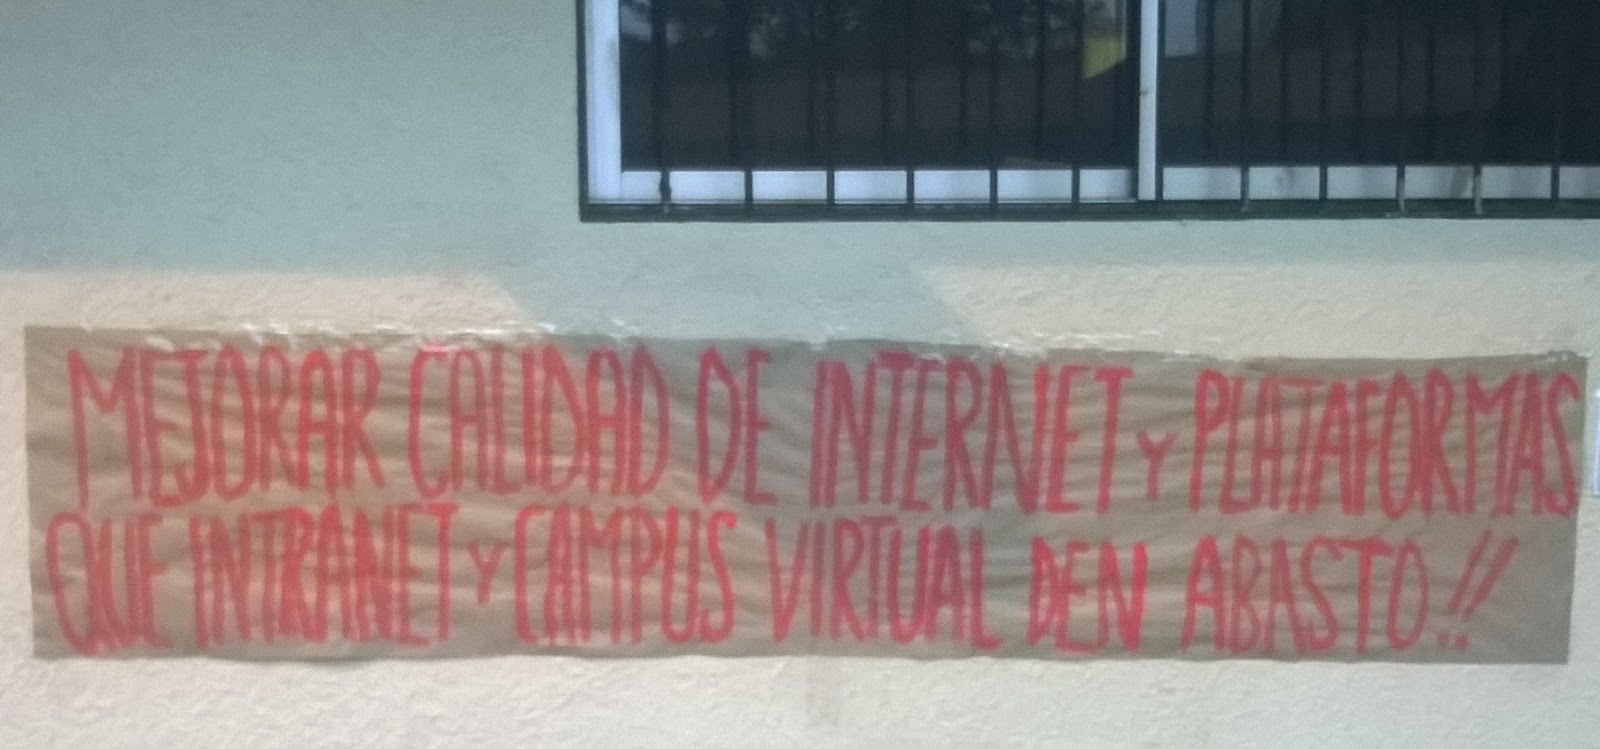 MEJORAR CALIDAD DE INTERNET Y PLATAFORMAS
QUE INTRANET Y CAMPUS VIRTUAL DEN ABASTO!!